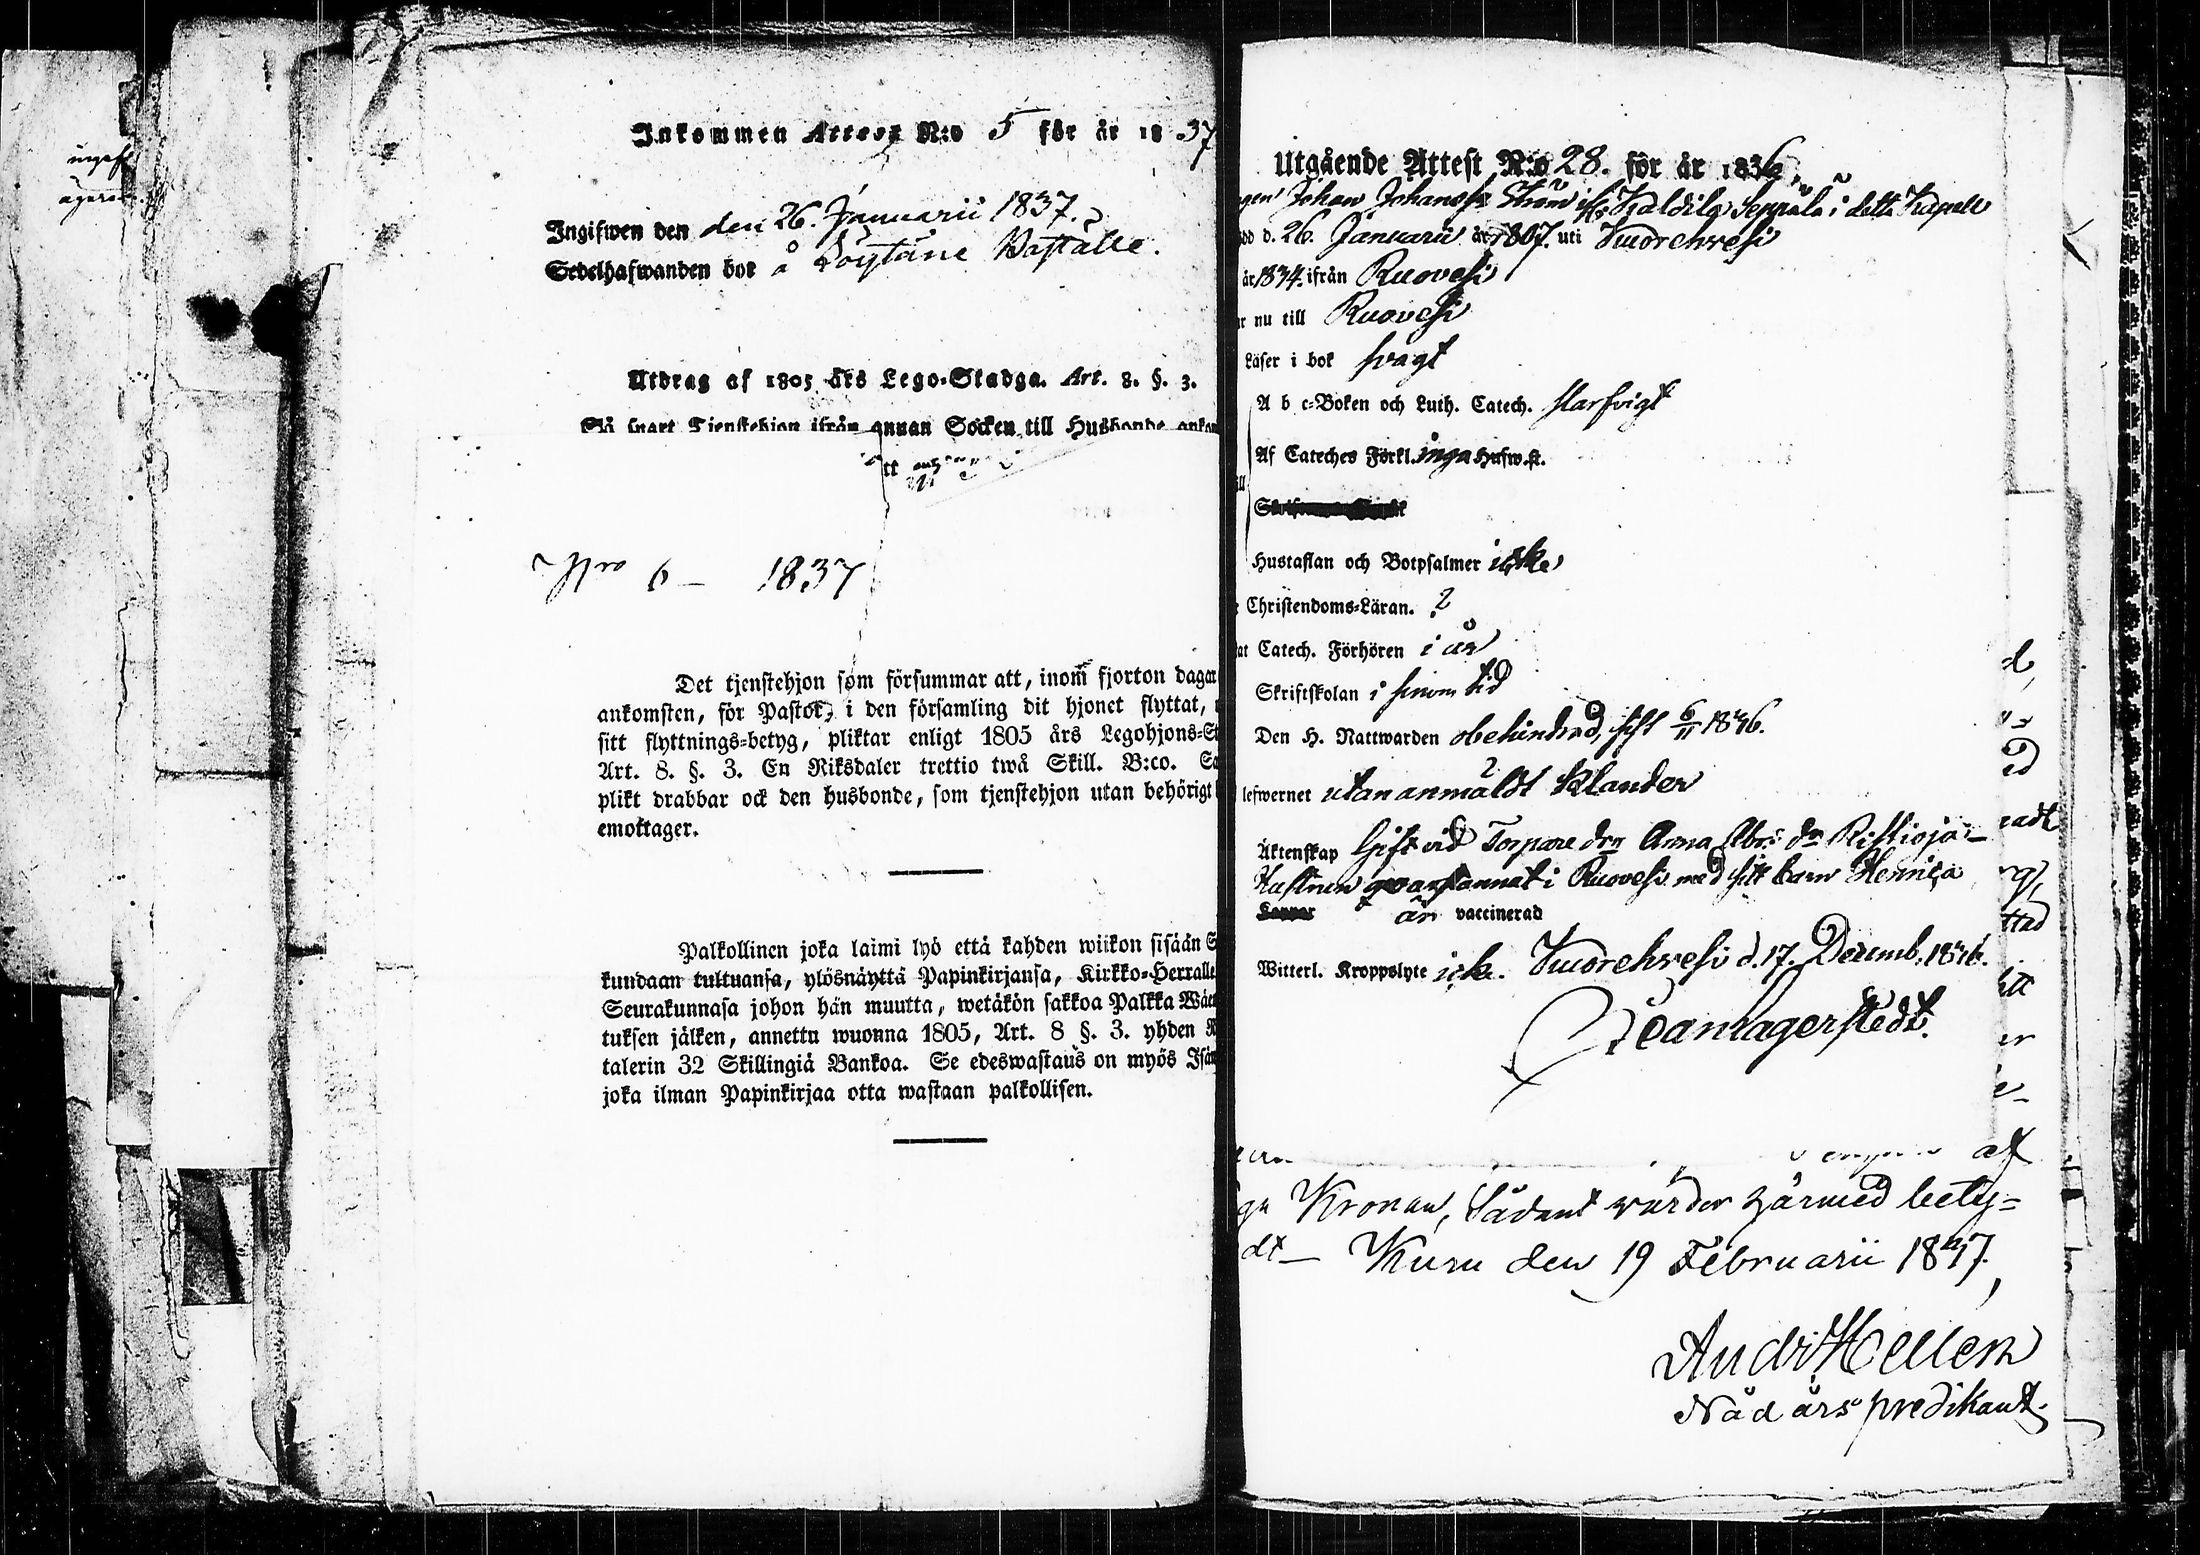 Inkommen Attest N:o 5 för år 1837
Ingifwen den den 26. Januarii 1837.
Sedelhafwanden bor å
Utdrag af 1805 års Lego-Stadga. Art. 8. §. 3.
Så snart Tjenstehjon ifrån annan Socken till Husbonde
Nro 6 – 1837
Det tjenstehjon som försummar att, inom fjorton dagar
ankomsten, för Pastor, i den församling dit hjonet flyttat,
sitt flyttnings-betyg, pliktar enligt 1805 års Legohjons-St
Art. 8. §. 3. En Riksdaler trettio twå Skill. B:co. Sa
plikt drabbar ock den husbonde, som tjenstehjon utan behörigt
emottager.
Palkollinen joka laimi lyö että kahden wiikon sisään S
kundaan tultuansa, ylösnäyttä Papinkirjansa, Kirkko-Herralle
Seurakunnasa johon hän muutta, wetäkön sakkoa Palkka Wät
tuksen jälken, annettu wuonna 1805, Art. 8 §. 3. yhden R
talerin 32 Skillingiä Bankoa. Se edeswastaus on myös Isän
joka ilman Papinkirjaa otta wastaan palkollisen.
Utgående Attest N:o 28. för år 1836,
gen Johan Johanss. Ström Seppälä i detta Kapell
dd d. 26. Januarii år 1807. uti Vuorehvesi
år 1834. ifrån Ruovesi
r nu till Ruovesi
Läser i bok svagt
A b c-Boken och Luth. Catech. slarfvigt
Af Cateches Förkl. inga Hufw.st.
Hustaflan och Botpsalmer icke
Christendoms-Läran. ?
at Catech. Förhören i år
Skriftskolan i sinom tid
Den H. Nattwarden obehindrad, sist 6/11 1836.
lefwernet utan anmäldt klander
Äktenskap Gift vid Torpare dr Anna Abrs dr Ristioja
Hustrun qvarstannat i Ruovesi med sitt barn Henrica
Koppor är vaccinerad
Witterl. Kroppslyte ick. Vuorehvesi d. 17. Decemb. 1836.
Lagerstedt.
af
Kronan, Sådant warder härmed bety=
dt – Kuru den 19 Februarii 1837.
Andr Hellen
Nådårspredikant.